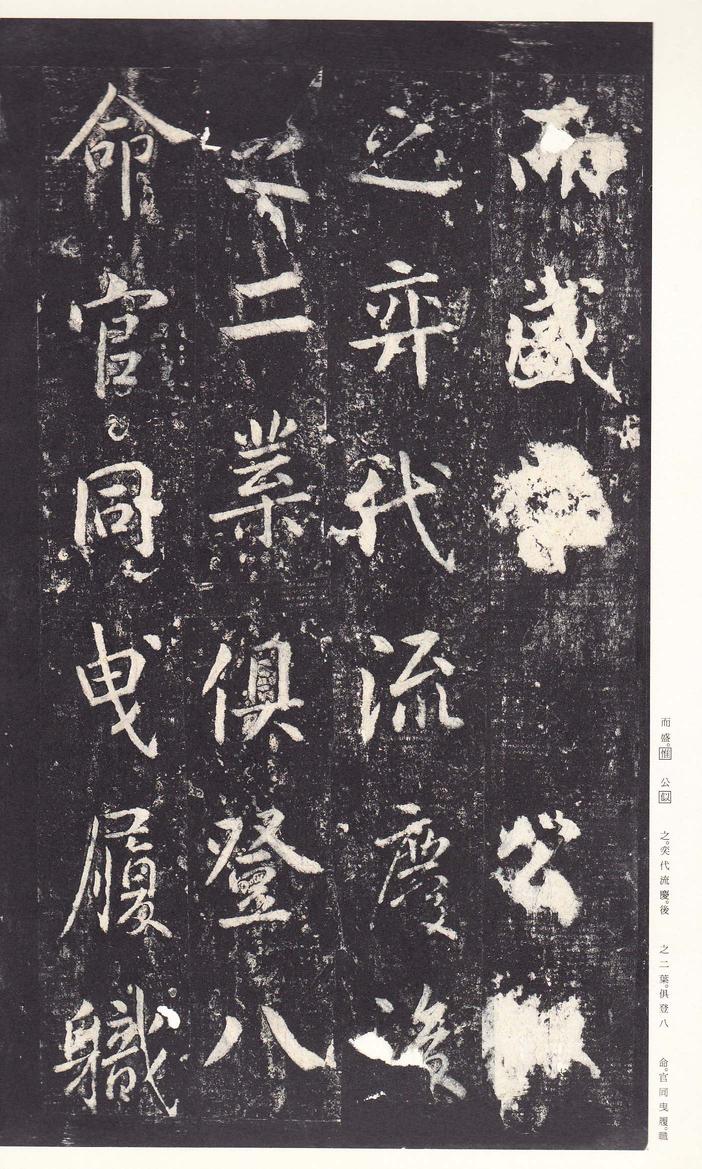 而盛公
之弈代流慶後
之二葉俱登八
命官同曳履職
而盛。惟 公似 之。奕代流慶。後 之二葉。俱登八 命。官同曳履。職